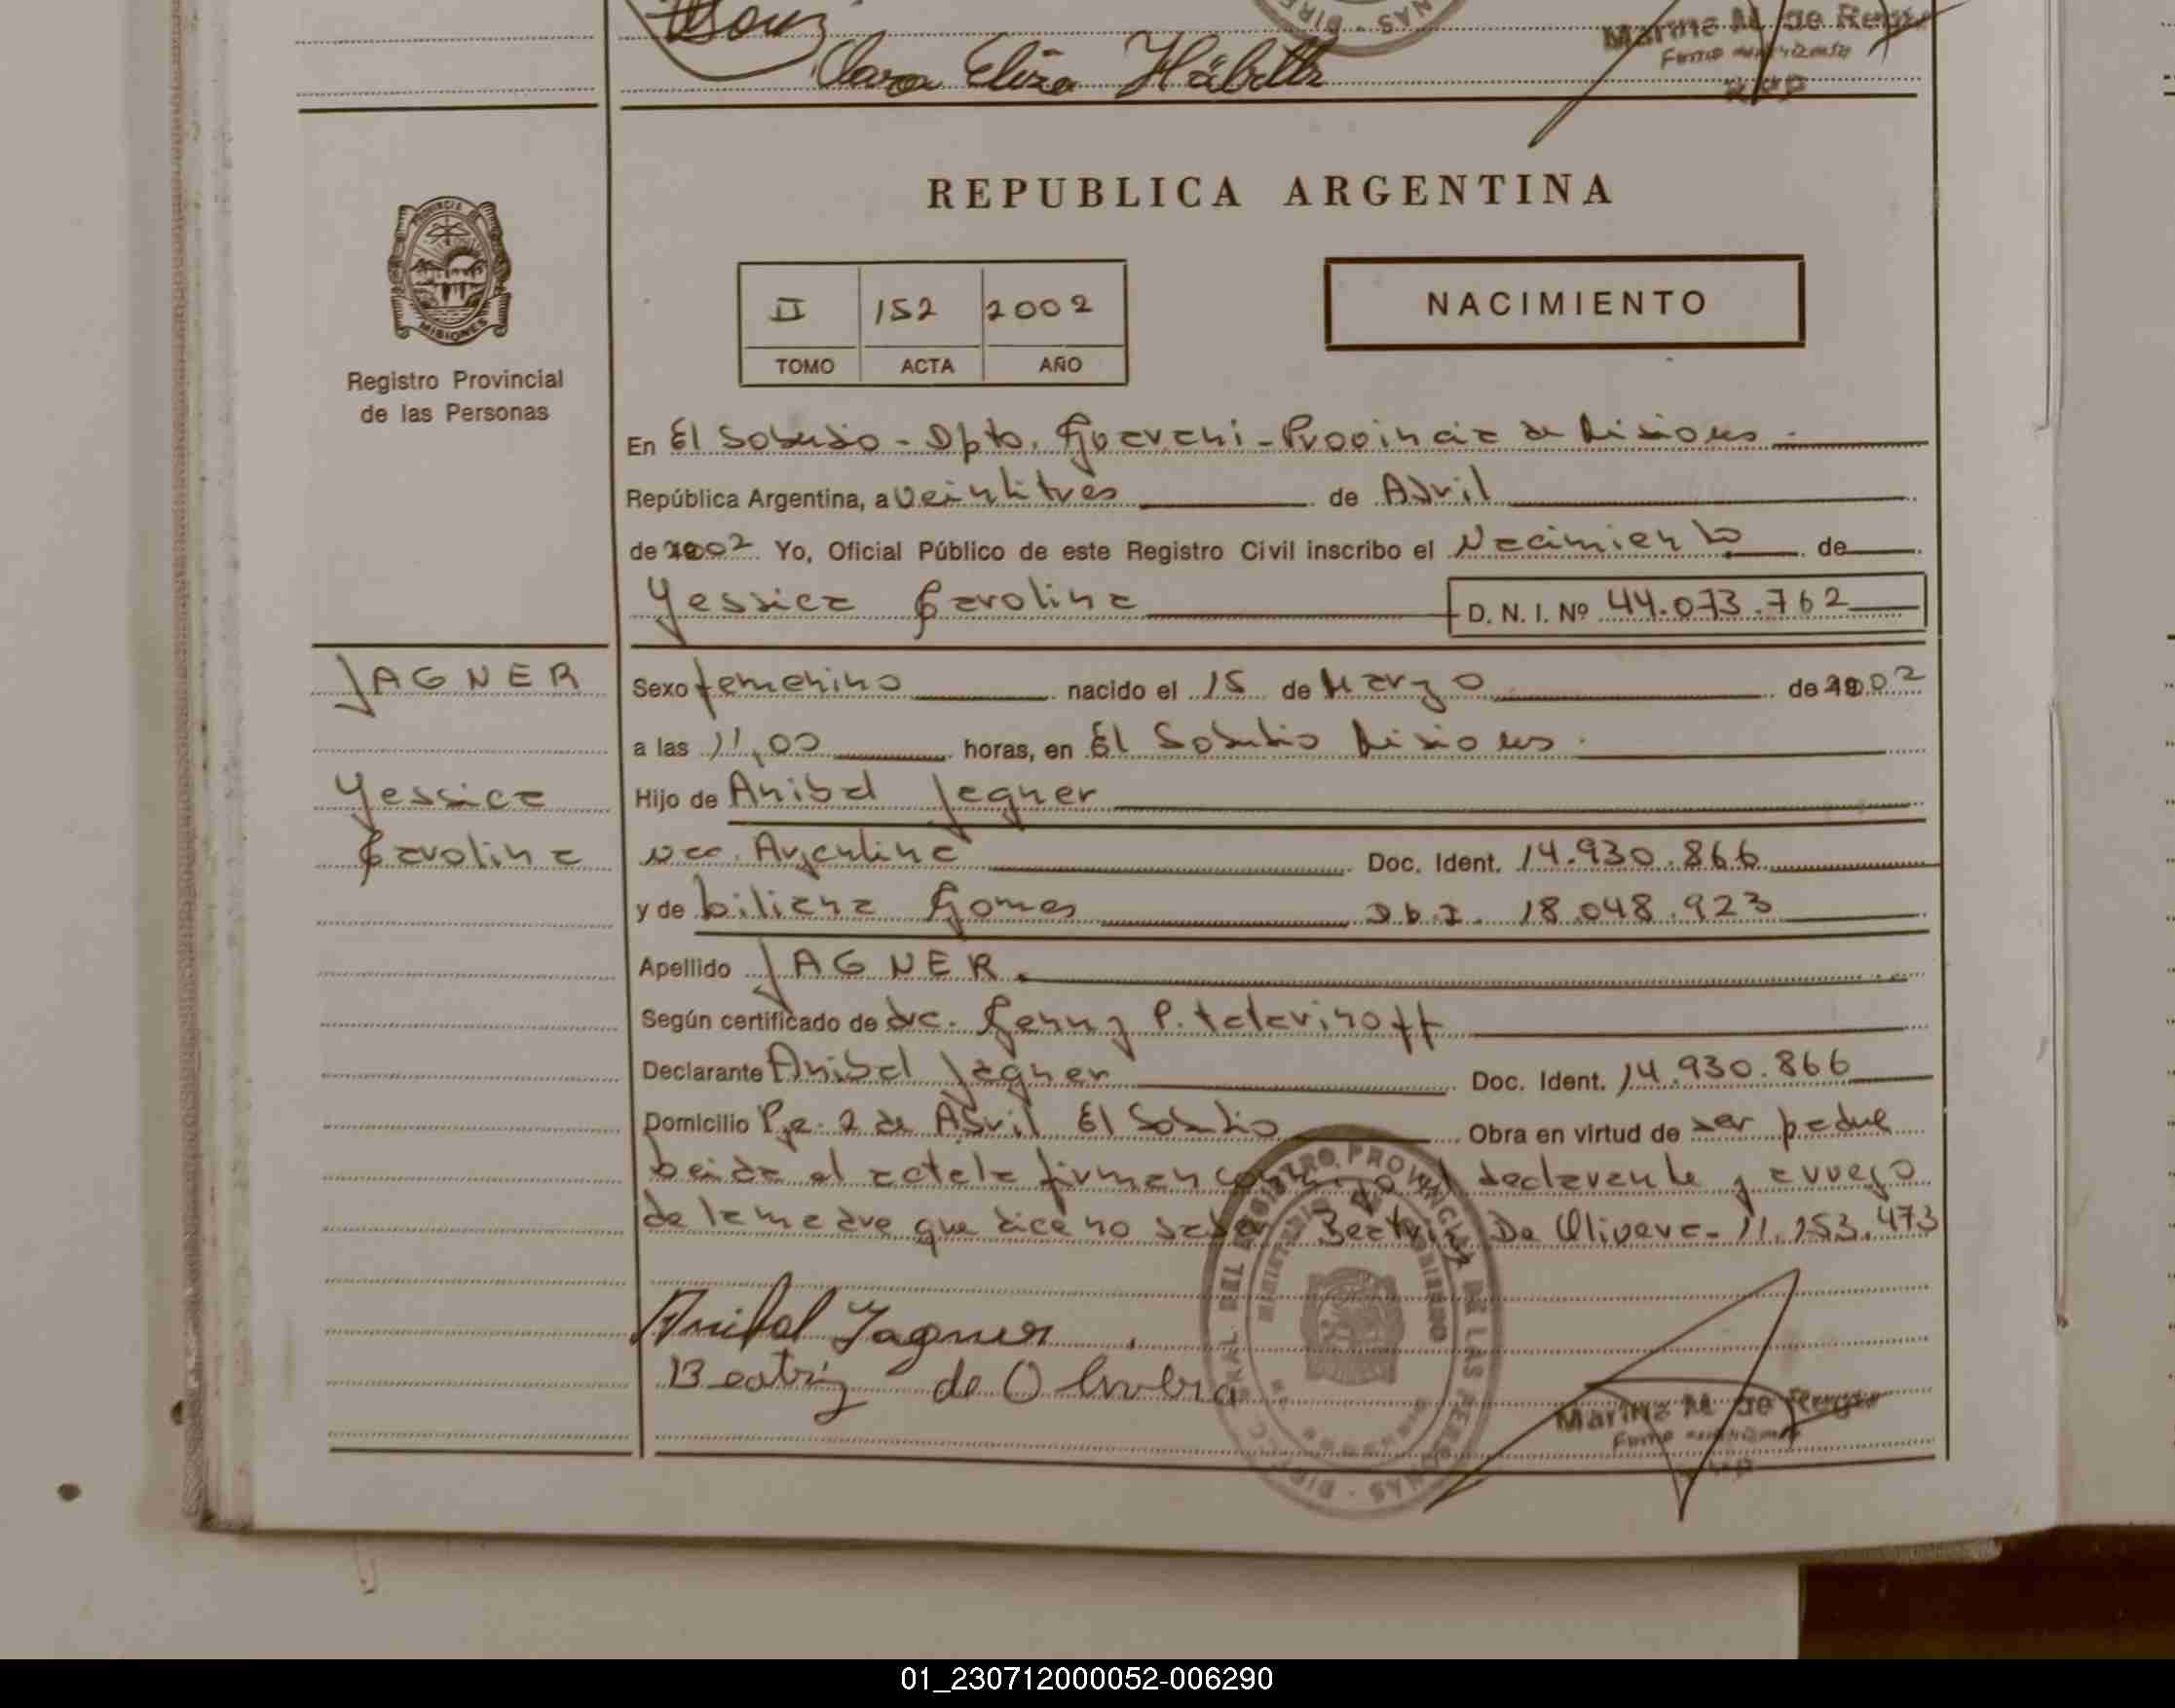 Clara Elisa
Marina M. de
REPUBLICA ARGENTINA
PROVINCIA
MISIONES
Registro Provincial
de las Personas
II 152 2002
TOMO ACTA AÑO
NACIMIENTO
En El Soberbio - Dpto. Guarani - Provincia de Misiones -
República Argentina, a veintitres de Abril
de 2002 Yo, Oficial Público de este Registro Civil inscribo el Nacimiento de
Yessica Carolina D. N. I. Nº 44.073.762
JAGNER
Yessica
Carolina
Sexo femenino nacido el 15 de Marzo de 2002
a las 11,00 horas, en El Soberbio Misiones.
Hijo de Anibal Jagner
nac. Argentina Doc. Ident. 14.930.866
y de Liliana Gomes D.N.I. 18.048.923
Apellido JAGNER.
Según certificado de P.
Declarante Anibal Jagner Doc. Ident. 14.930.866
Domicilio Pje. 2 de Abril El Soberbio Obra en virtud de ser padre
Leida el acta la firman conmigo el declarante y a ruego
de la madre que dice no saber Beatriz De Olivera - 11.153.473
Anibal Jagner.
Beatriz de Oliveira
Marina M. de
01_230712000052-006290